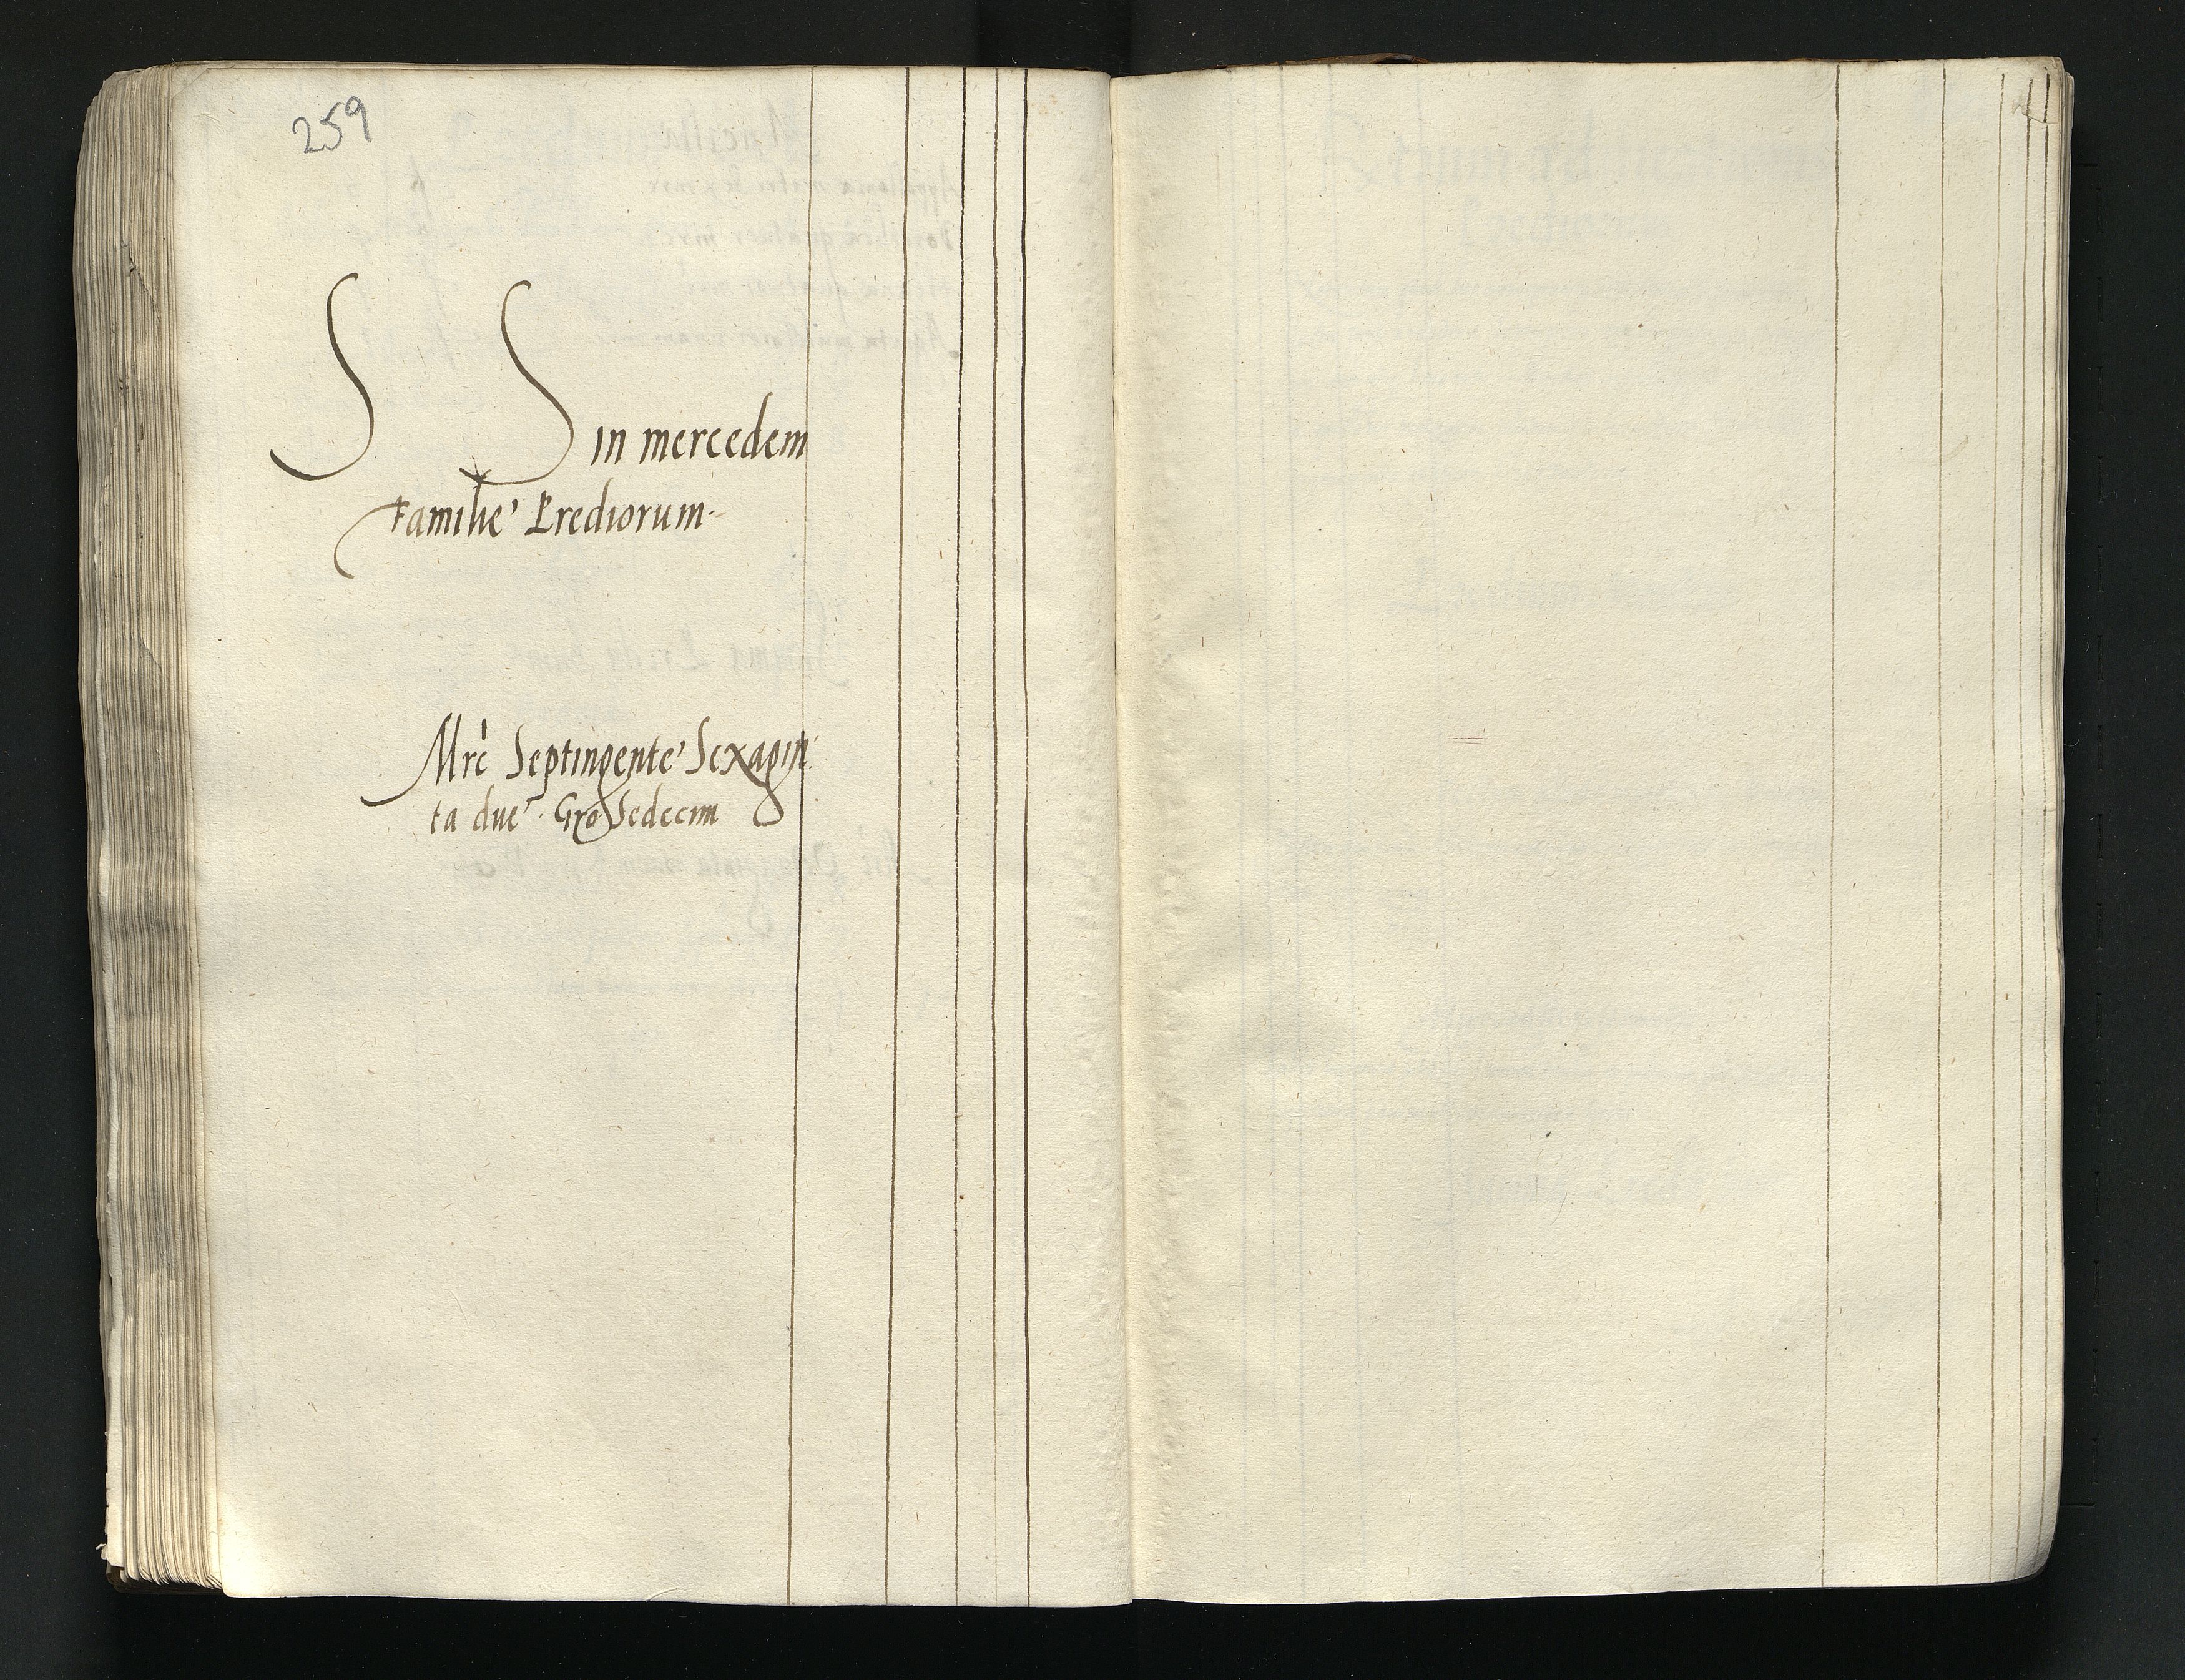 259
S S in mercedem
Familie Prediorum
Mrc Septingente Sexagin
ta due Gro Sedecim